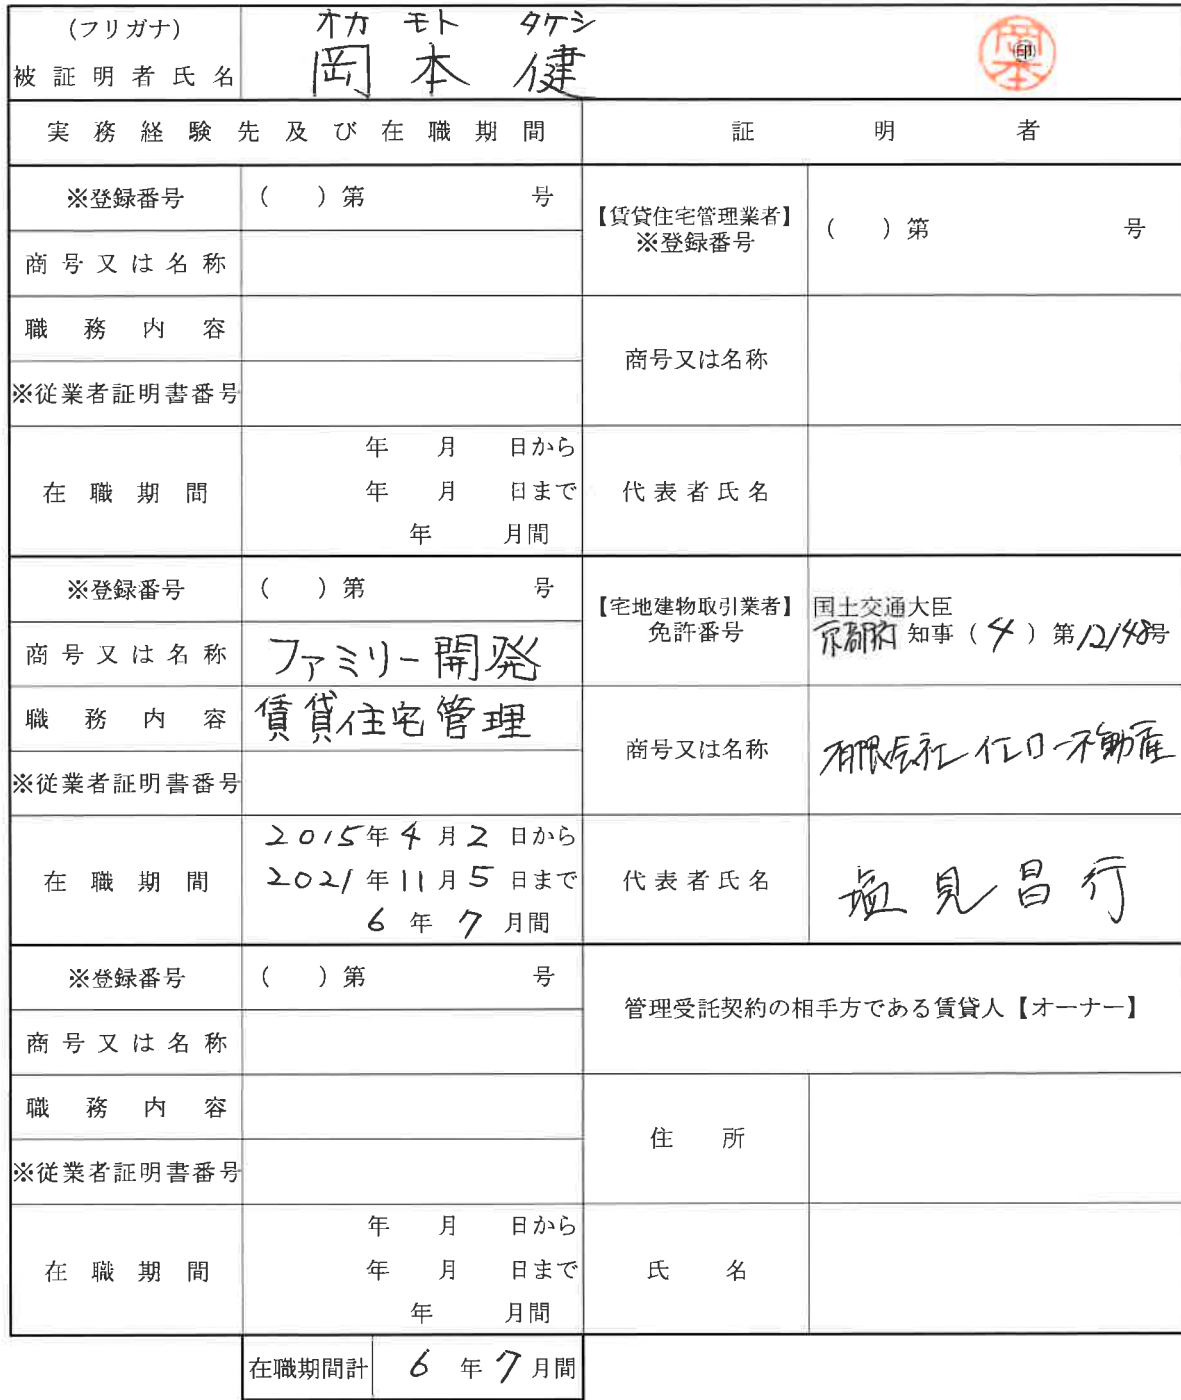 (フリガナ) オカ モト タケシ
被証明者氏名 岡本 健 ㊞
実務経験先及び在職期間 証明者
※登録番号 ( ) 第 号
【賃貸住宅管理業者】
※登録番号 ( ) 第 号
商号又は名称
職務内容
商号又は名称
※従業者証明書番号
在職期間 年 月 日から
年 月 日まで
年 月間
代表者氏名
※登録番号 ( ) 第 号
【宅地建物取引業者】
免許番号
国土交通大臣
京都府 知事 (4) 第12148号
商号又は名称 ファミリー開発
職務内容 賃貸住宅管理
商号又は名称 有限会社イエロー不動産
※従業者証明書番号
在職期間 2015年4月2日から
2021年11月5日まで
6年7月間
代表者氏名 塩見昌行
※登録番号 ( ) 第 号
管理受託契約の相手方である賃貸人【オーナー】
商号又は名称
職務内容
住所
※従業者証明書番号
在職期間 年 月 日から
年 月 日まで
年 月間
氏名
在職期間計 6年7月間